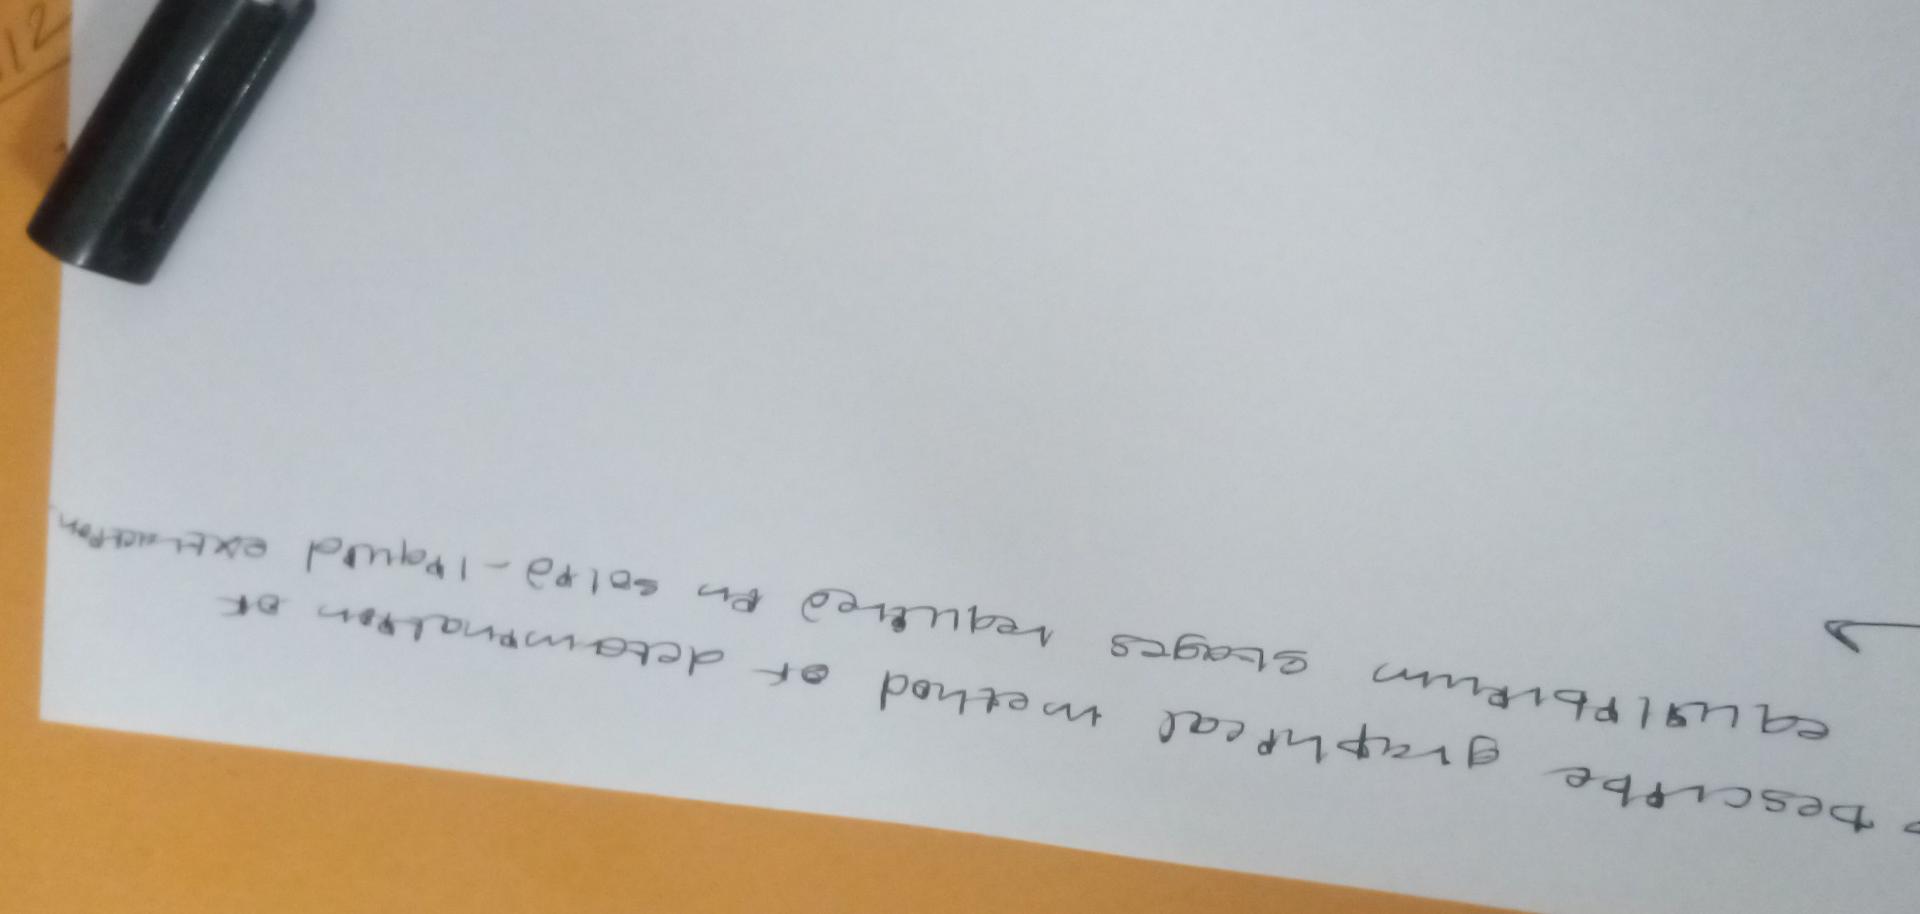 Describe graphical method of determination of
equilibrium stages required in solid-liquid extraction.
12